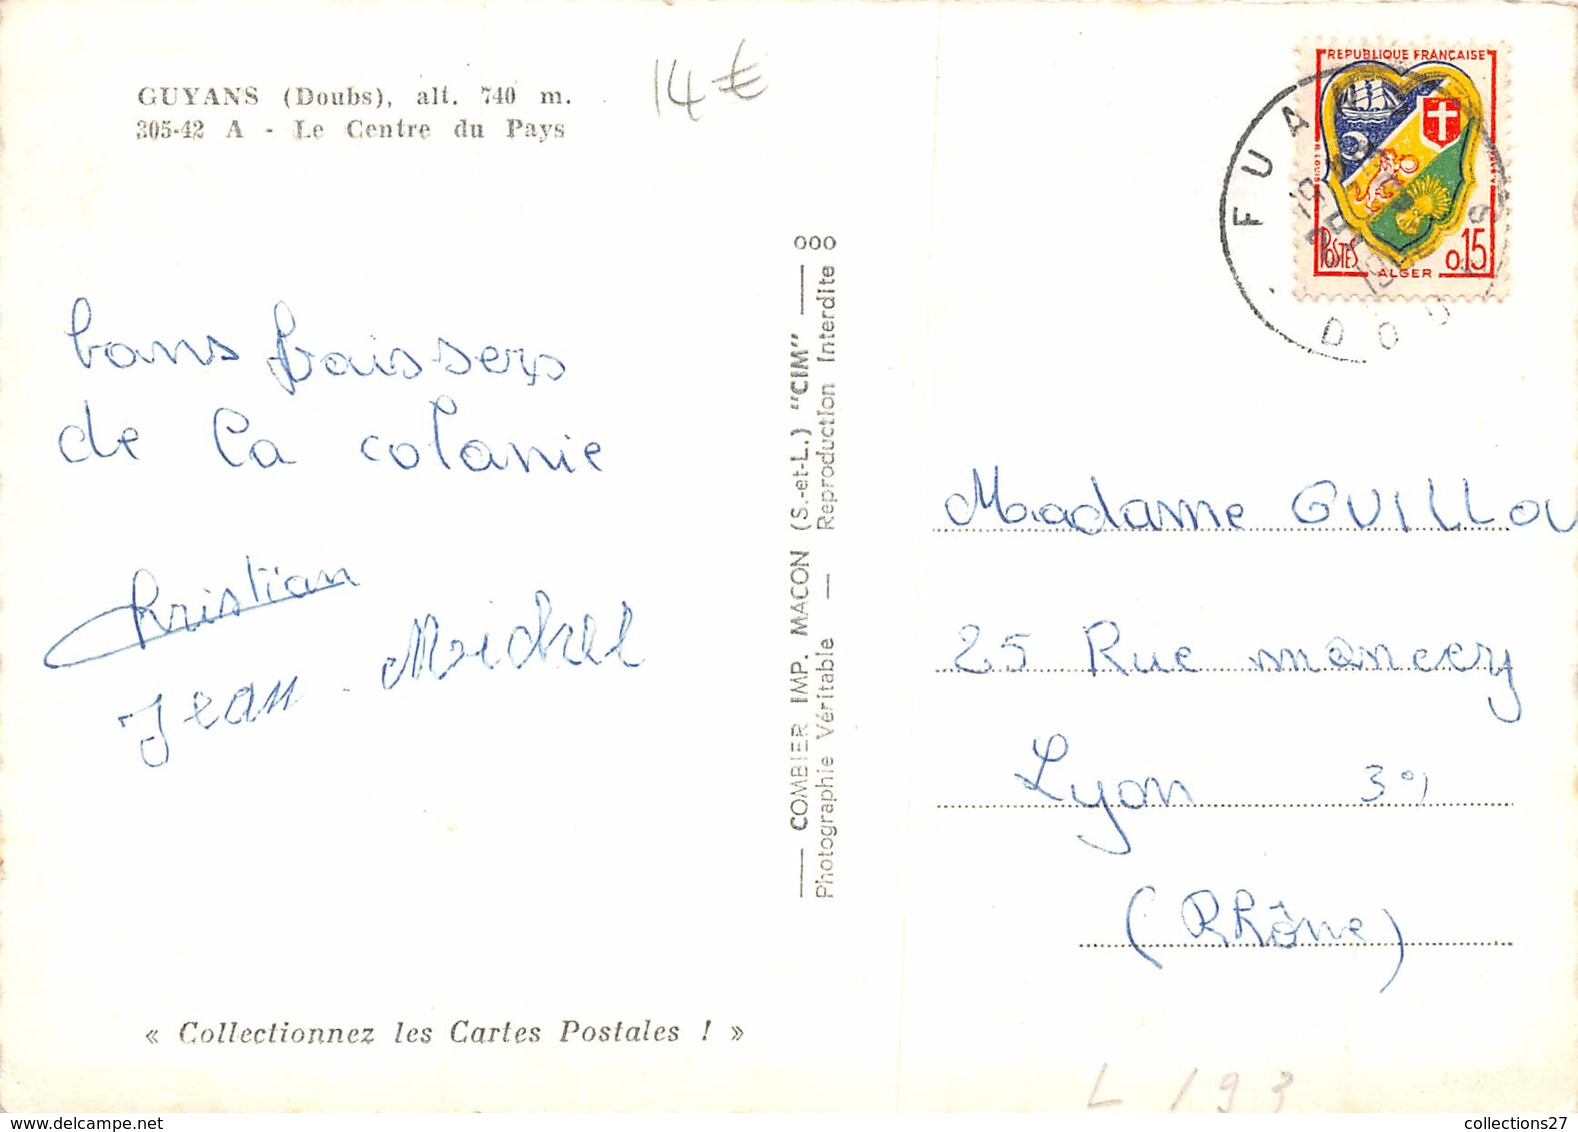 GUYANS (Doubs), alt. 740 m.
305-42 A - Le Centre du Pays
14€
bons baissers
de la colonie
Christian
Jean-Michel
« Collectionnez les Cartes Postales ! »
COMBIER IMP. MACON (S.-et-L.) "CIM"
Photographie Véritable — Reproduction Interdite
REPUBLIQUE FRANÇAISE
POSTES
ALGER
0,15
FUANS
DOUBS
Madame GUILLOU
25 Rue moncey
Lyon 3e
(Rhône)
L 193
collections27